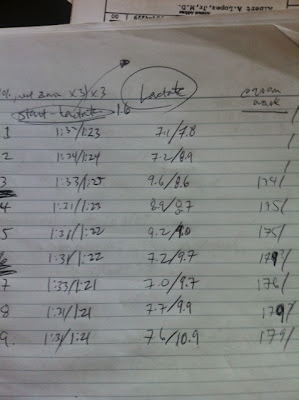 Albert A. Lopez, Jr., M.D.
x3/x3 Lactate
start lactate 1.6
1 1:23 7.1/7.8
2 1:24/1:24 7.2/8.9
3 1:33/1:25 9.6/8.6 174/
4 1:31/1:23 8.9/8.7 175/
5 1:31/1:22 9.2/9.0 175/
6 1:31/1:22 7.2/9.7
7 1:33/1:21 7.0/9.7 176/
8 1:31/1:21 7.7/9.9 179/
9. 1:31/1:21 7.6/10.9 179/